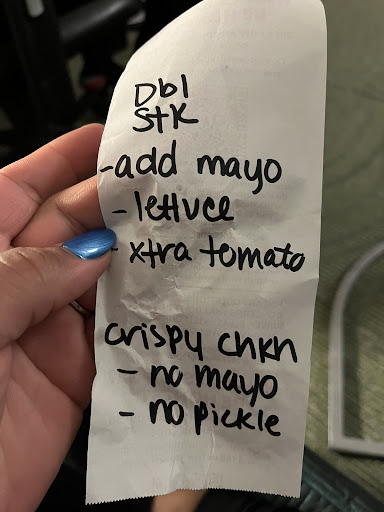 Dbl
Stk
-add mayo
- lettuce
- xtra tomato
crispy chkn
- no mayo
- no pickle